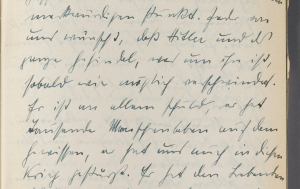 merkwürdigen Punkt. Jeder von
uns wünscht, daß Hitler und das
ganze Gesindel, was um ihn ist,
sobald wie möglich verschwindet.
Er ist an allem schuld, er hat
tausende Menschenleben auf dem
Gewissen, er hat uns auch in diesen
Krieg gestürzt. Er hat den